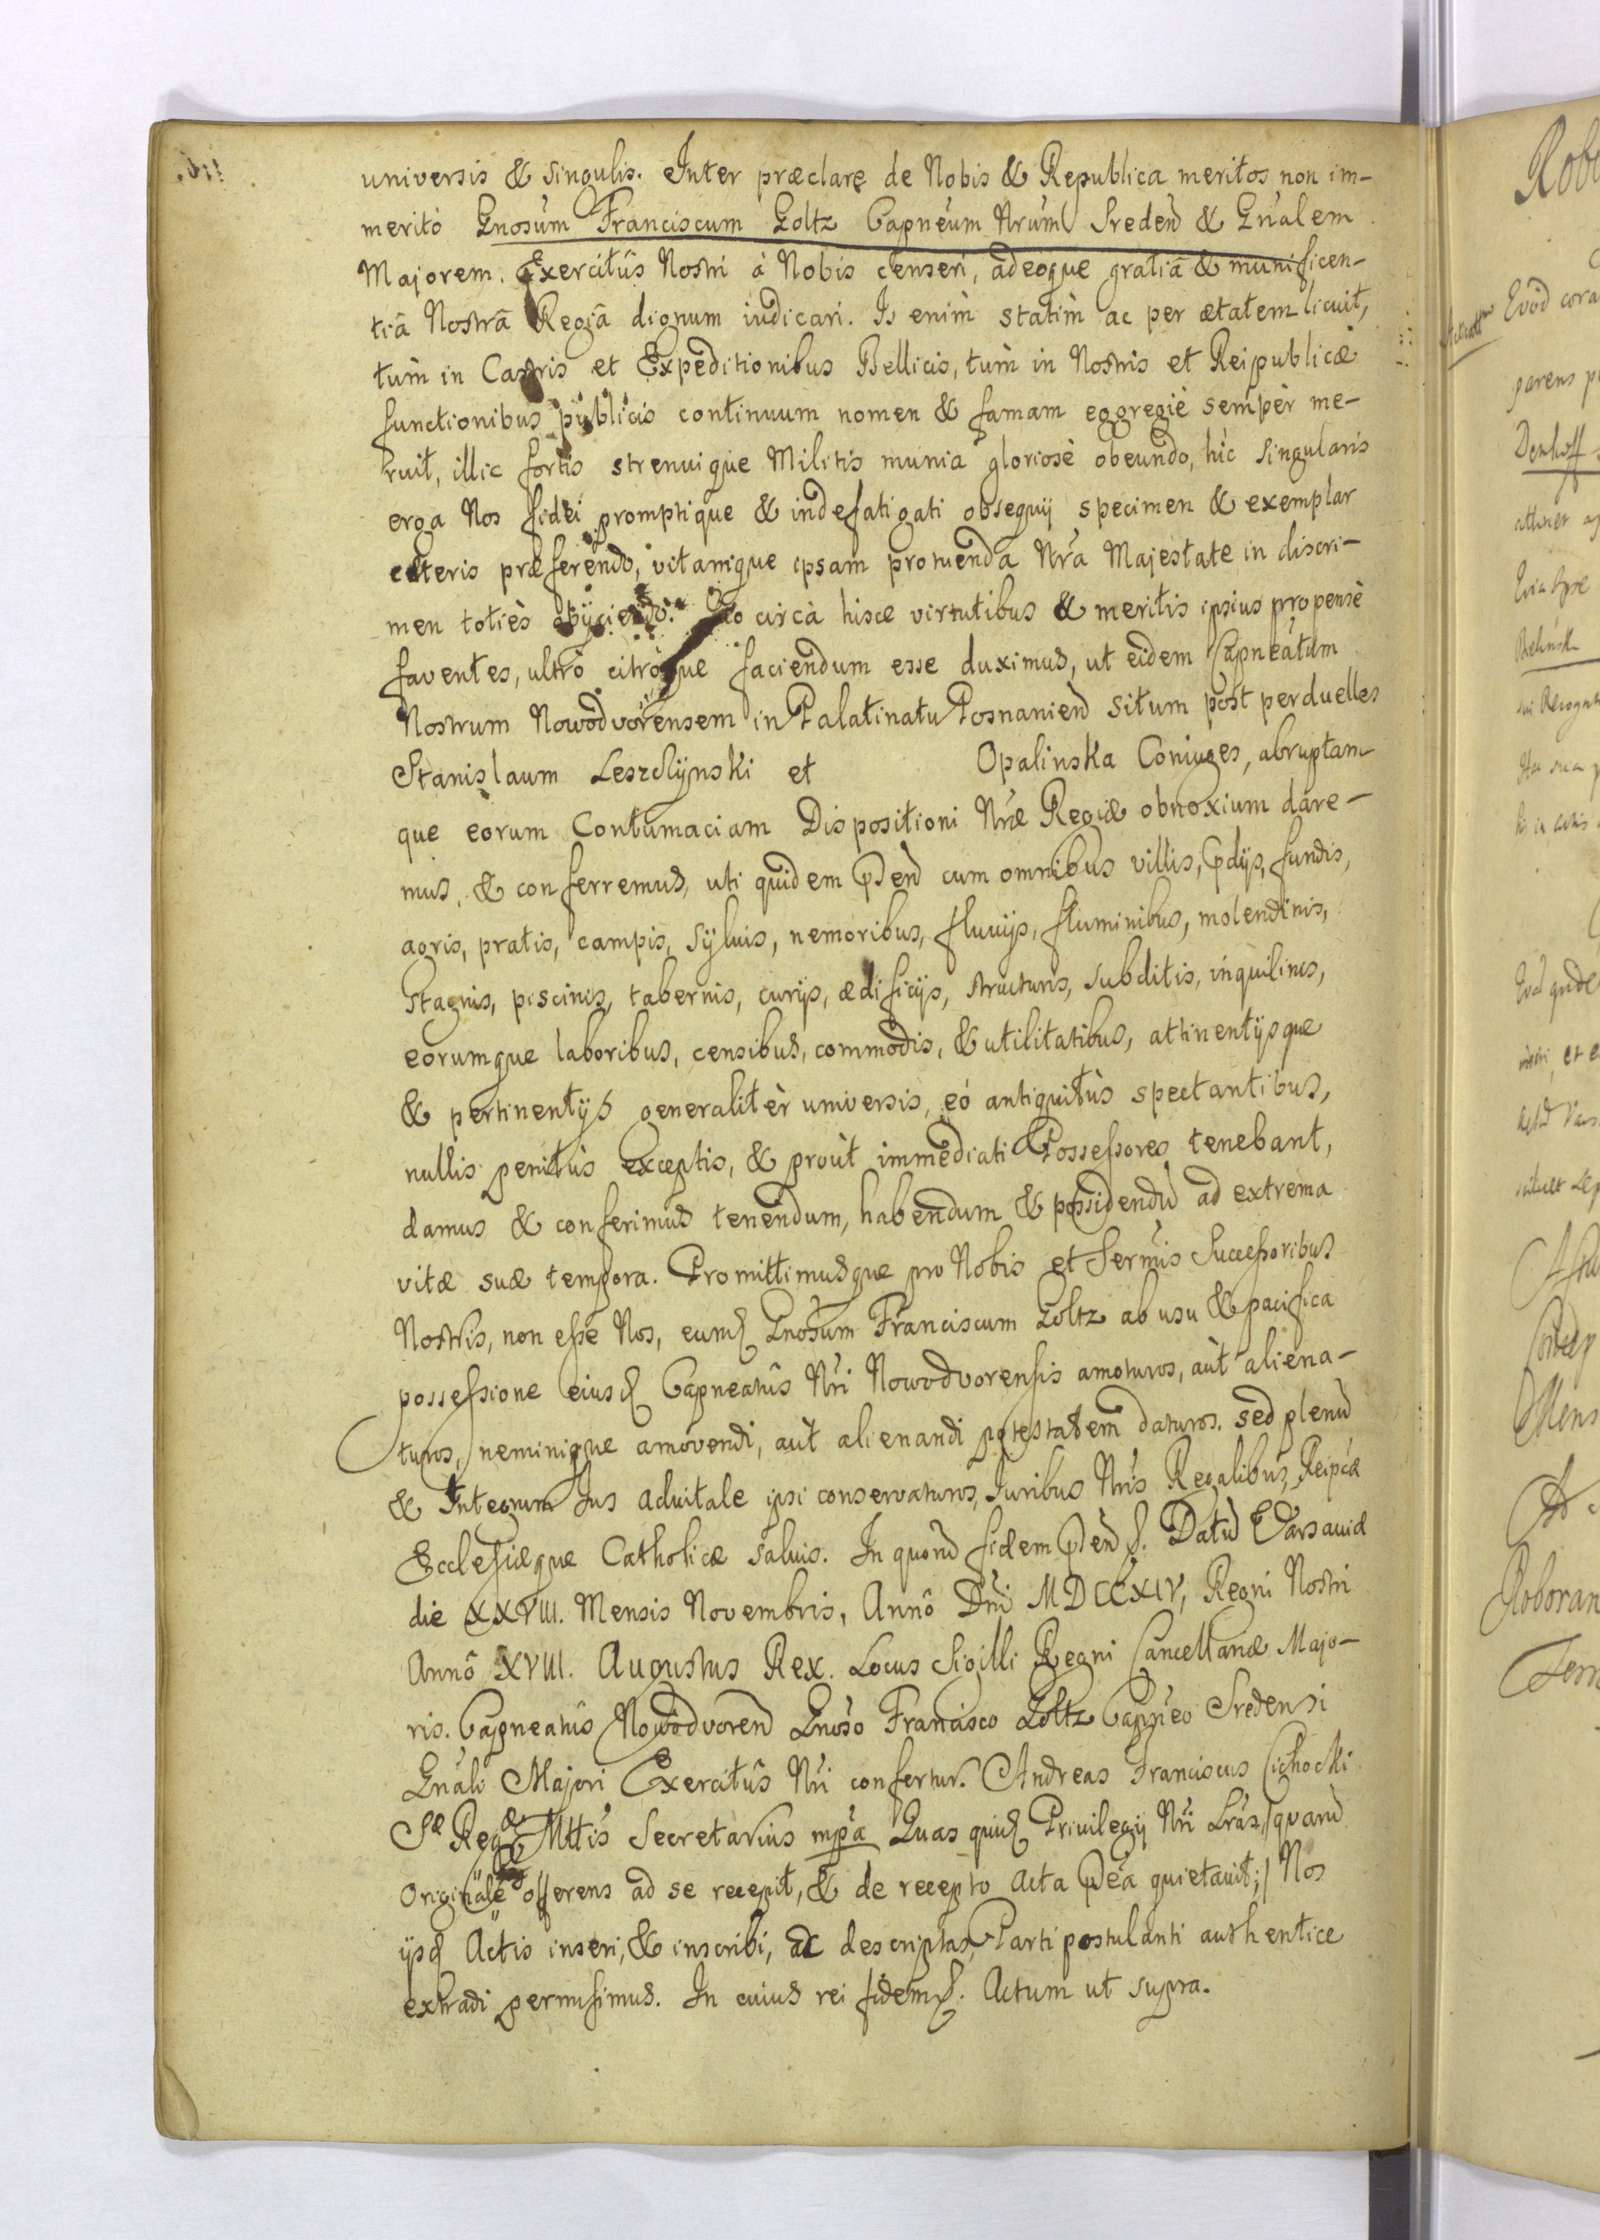 universis & singulis. Inter præclare de Nobis & Republica meritos non im-
meritò Gnosum Franciscum Goltz Capneum Nrum Sreden & Gnalem
Majorem. Exercitûs Nostri à Nobis censeri, adeoque gratiâ & munificen-
tiâ Nostrâ Regiâ dignum iudicari. Is enim statim ac per ætatem licuit,
tum in Castris et Expeditionibus Bellicis, tum in Nostris et Reipublicæ
functionibus publicis continuum nomen & famam eggregiè sempèr me-
ruit, illic fortis strenuique Militis munia gloriosè obeundo, hic singularis
erga Nos fidei promptique & indefatigati obsequij specimen & exemplar
cæteris præferendo, vitamque ipsam pro tuenda Nra Majestate in discri-
men totiès obijciendo. Quo circà hisce virtutibus & meritis ipsius propensè
faventes, ultrò citròque faciendum esse duximus, ut eidem Capneatum
Nostrum Nowodvorensem in Palatinatu Posnanien situm post perduelles
Stanislaum Leszczynski et Opalinska Coniuges, abruptam
que eorum Contumaciam Dispositioni Nræ Regiæ obnoxium dare-
mus, & conferremus, uti quidem pden cum omnibus villis, pdijs, fundis,
agris, pratis, campis, sylvis, nemoribus, fluvijs, fluminibus, molendinis,
stagnis, piscinis, tabernis, curijs, ædificijs, structuris, subditis, inquilinis,
eorumque laboribus, censibus, commodis, & utilitatibus, attinentijsque
& pertinentijs generalitèr universis, eò antiquitùs spectantibus,
nullis penitùs exceptis, & proùt immediati Possessores tenebant,
damus & conferimus tenendum, habendum & possidendu ad extrema
vitæ suæ tempora. Promittimusque pro Nobis et Sermis Successoribus
Nostris, non esse Nos, eumd Gnosum Franciscum Goltz ab usu & pacifica
possessione eiusd Capneatûs Nri Nowodvorensis amoturos, aùt aliena-
turos, neminique amovendi, aùt alienandi potestatem daturos. sed plenu
& Integrum Jus advitale ipsi conservaturos, Juribus Nris Regalibus, Reipcæ
Ecclesiæque Catholicæ salvis. In quoru fidem pden. Datu Varsaviæ
die XXVIII. Mensis Novembris, Annô Dni MDCCXIV, Regni Nostri
Annô XVIII. Augustus Rex. Locus Sigilli Regni Cancellariæ Majo-
ris. Capneatûs Nowodvoren Gnoso Francisco Goltz Capneo Sredensi
Gnali Majori Exercitûs Nri confertur. Andreas Franciscus Cichocki
Sæ Regæ Mttis Secretarius mpa Quas quid Privilegij Nri Lras, /quaru
Originale offerens ad se recepit, & de recepto acta pdea quietavit;/ Nos
ijsd Actis inseri, & inscribi, ac descriptas, Parti postulanti authentice
extradi permisimus. In cuius rei fidem. Actum ut supra.